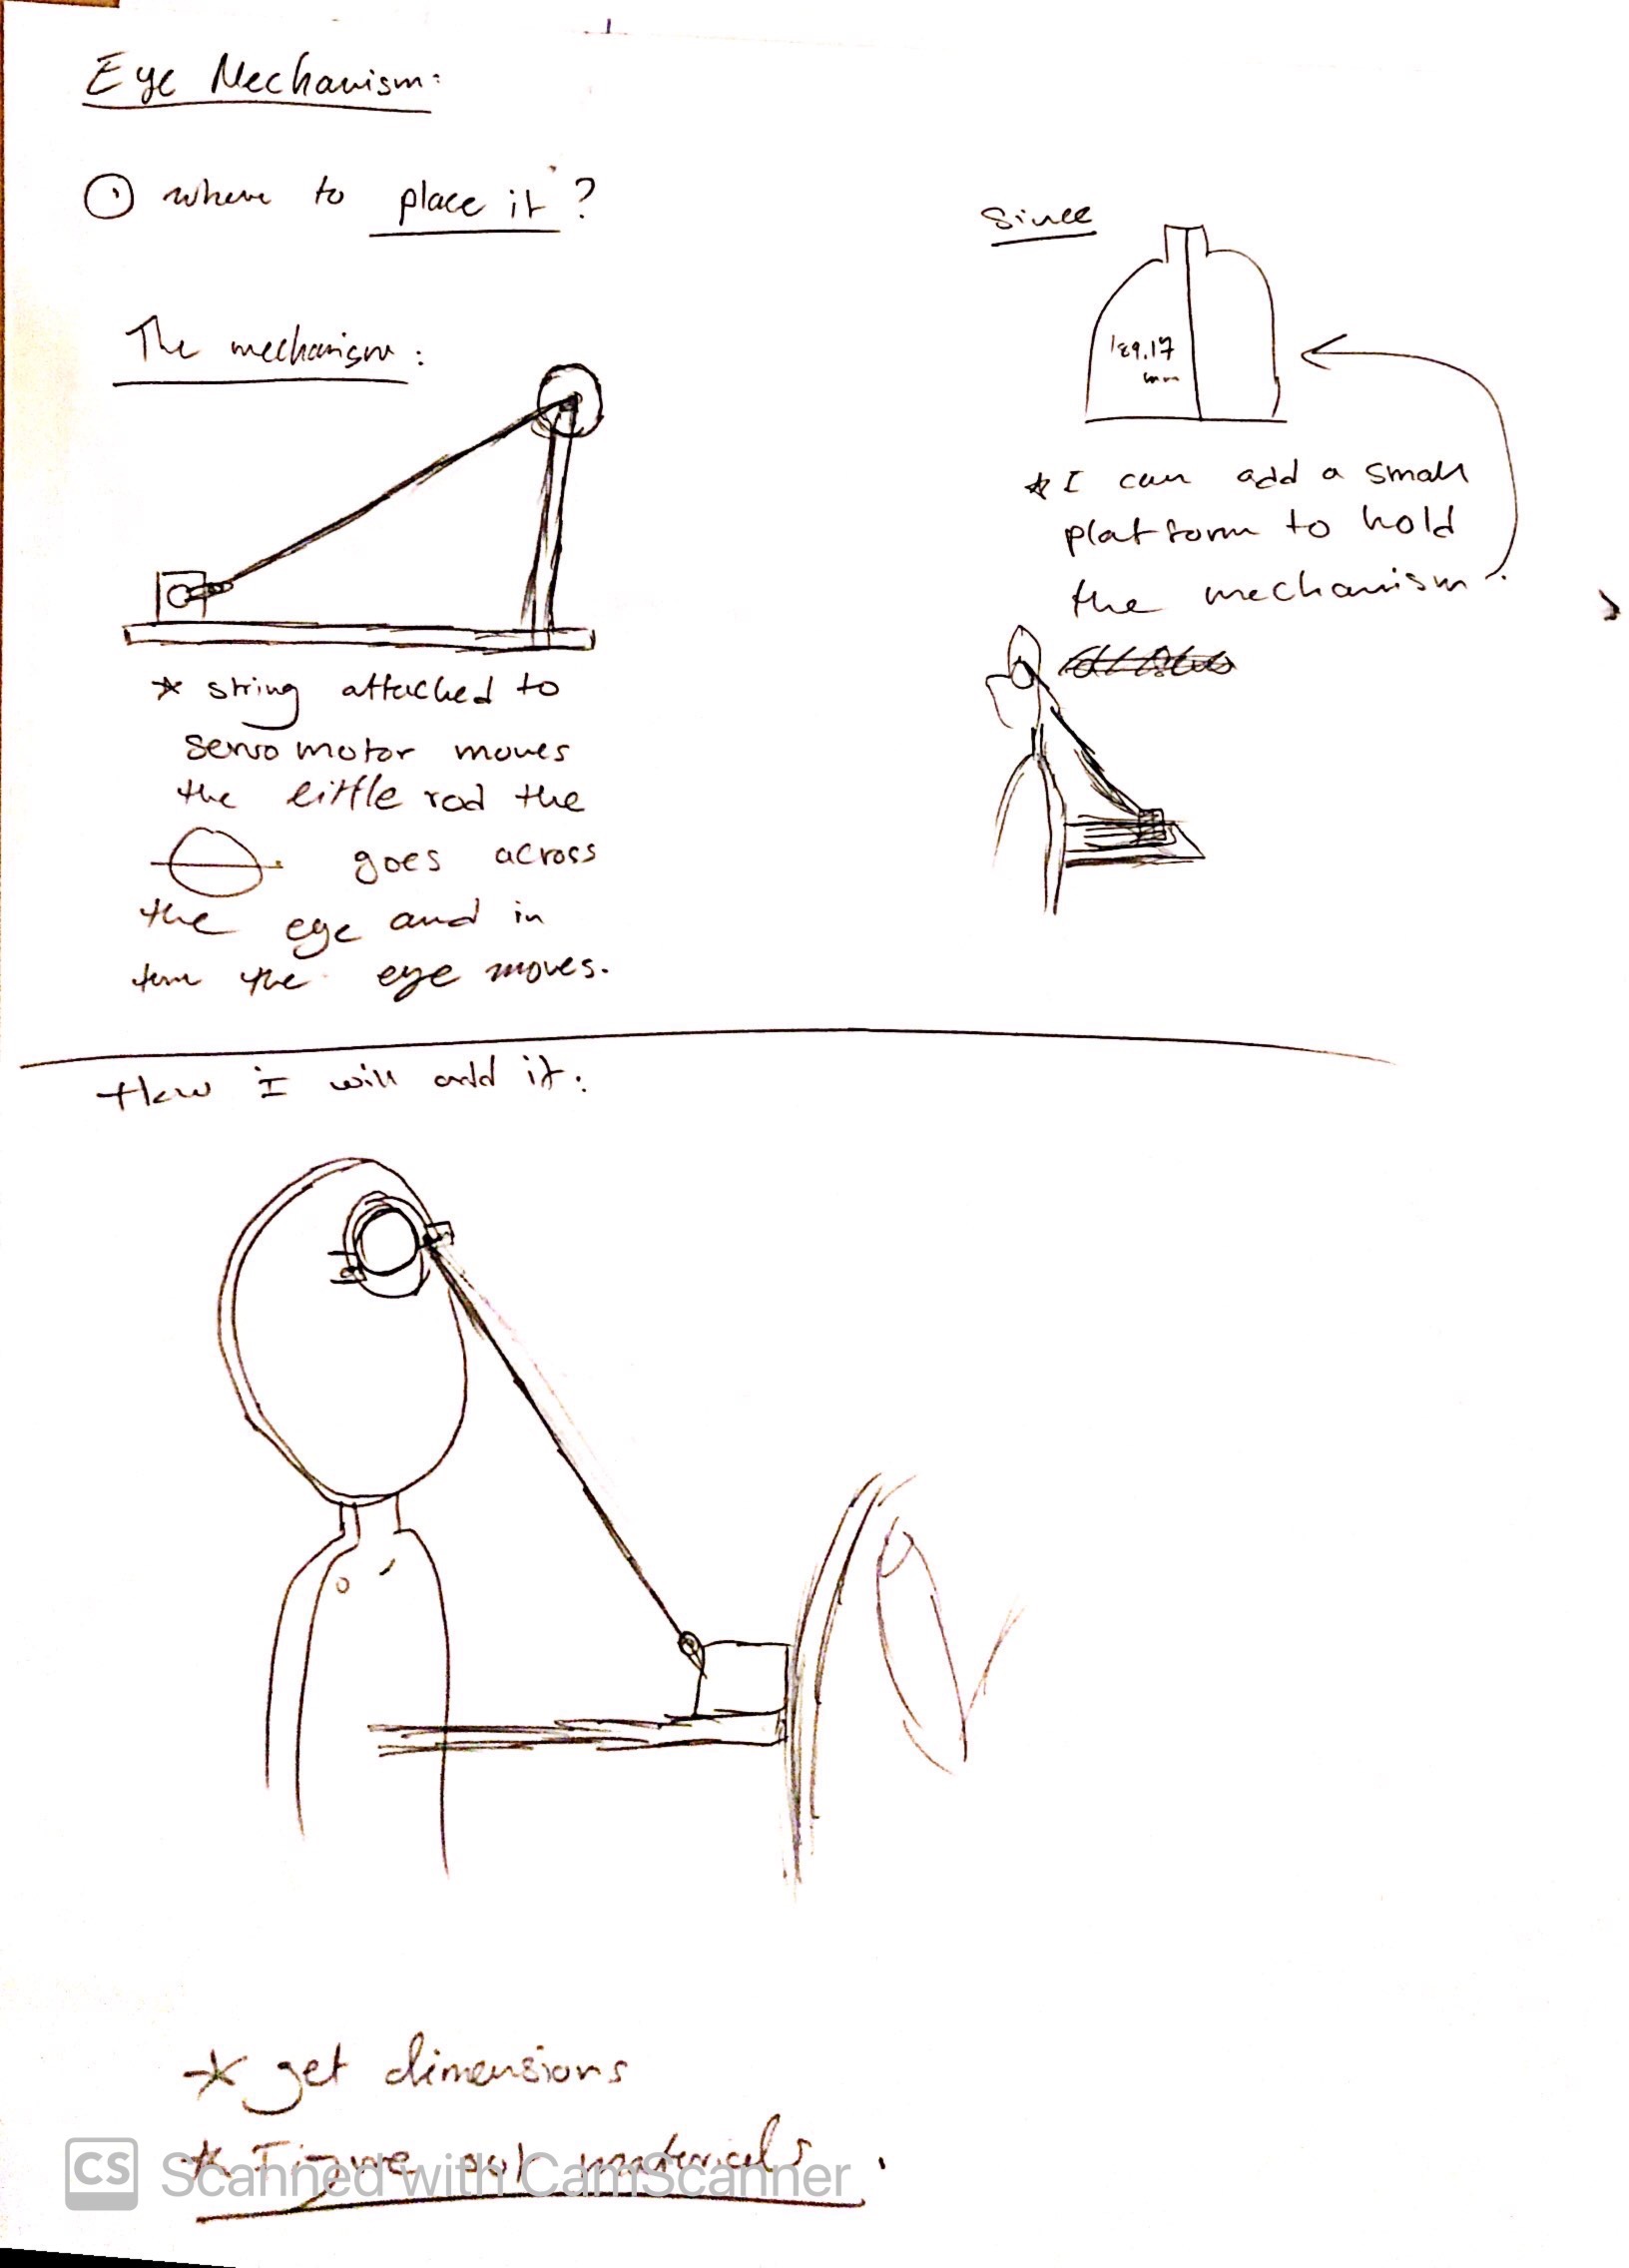 Eye Mechanism:
① where to place it?
The mechanism:
* string attached to
servo motor moves
the little rod the
goes across
the eye and in
turn the eye moves.
Since
189.17
mm
* I can add a small
platform to hold
the mechanism.
How I will add it:
* get dimensions
* Figure out materials.
CS Scanned with CamScanner